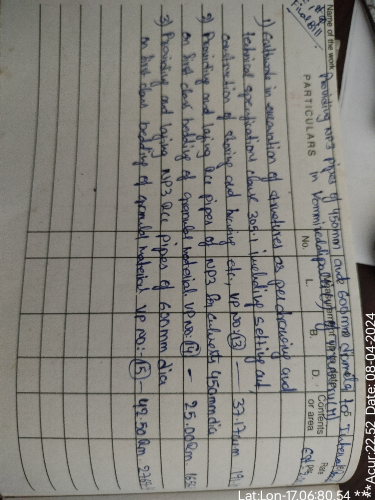 1st &
Final Bill
Name of the work
Providing NP3 pipes of 450mm and 600mm diameter for Internal
PARTICULARS
in Vemireddipa
No.
L.
B.
D.
Contents
or area
1) Earthwork in excavation of structures as per drawing and
technical specifications clause 305.1 including setting out,
construction of shoring and bracing etc, VP NO:(13) — 37.17cum
2) Providing and laying RCC pipes of NP3 for culverts 450mm dia
on first class bedding of granular material. VP NO:(14) — 25.00Rm
3) Providing and laying NP3 RCC pipes of 600mm dia
on first class bedding of granular material VP NO:-(15) — 42.50Rm
Lat:Lon-17.06:80.54 *** Acur:22.52 Date:08-04-2024